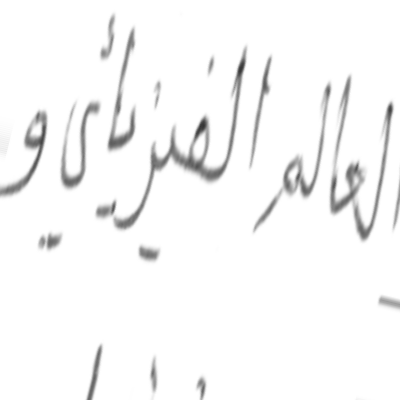 العالم الفيزيائي و